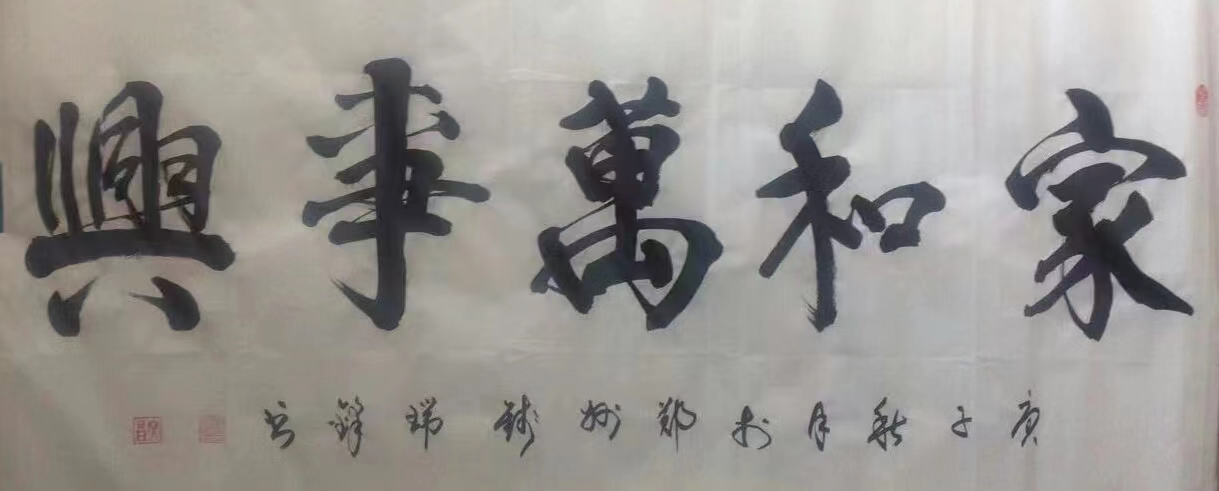 家和萬事興
庚子秋月於鄭州 瑞鋒书